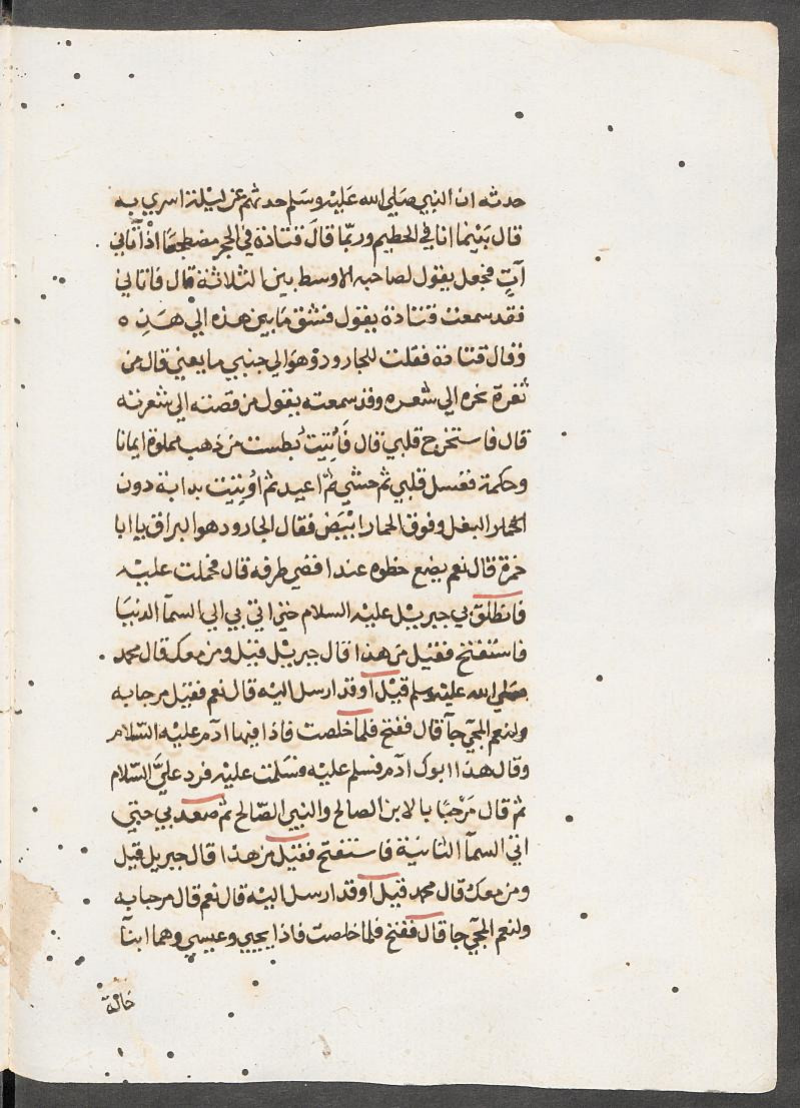 حدثه ان النبي صَلي الله عَليْه وسَلم حدثهم عن ليْلة اسري به
قال بَيْنما انا في الحطيم وربّما قالَ قتادة في الحِجر مضطجعًا اذْ اتاني
آتٍ فجعل يقول لصاحبه الاوسط بين الثلاثة قال فاتاني
فقد سمعت قتادة يقول فشق مَا بين هذه الي هَذِه
وقال قتادة فقلت للجارود وْهوَ الي جنبي ما يعني قال من
ثغرة نحره الي شعره وقد سمعته يقول من قصته الي شعرته
قال فاستخرج قلبي قال فَاُتِيتُ بطست من ذهب مملوة ايمانا
وحكمة فغسل قلبي ثم حشي ثمّ اعيد ثم اوُتِيت بدابة دون
البغل وفوق الحمار ابْيَض فقال الجارود هو البراق يا ابا
حمزة قال نعم يضع خطوه عند اقضي طرفه قال فحملت عليْه
فانطلق بي جبريْل عليْه السلام حتي اتي بي الي السمآ الدنيا
فاستفتح فقيْل مَن هذا قال جبريْل قيْل ومن معك قال محمد
صَلي الله عليْه وسلم قيْل اَوقد ارسل اليْه قال نعم فقيْل مرحبا به
ولنعم المجَي جآ قال ففتح فلما خلصت فاذا فيها ادم عليْه السّلام
وقال هذا ابوك ادم فسلم عليْه فسَلمت عليْه فرد عليَّ السّلام
ثم قال مَرْحبًا بالابن الصالح والنبي الصّالح ثم صَعد بي حتي
اتي السمآ الثانية فاستفتح فقيْل من هذا قال جبريل قيل
ومن معك قال محمد قيْل اَوقد ارسل اليْه قال نعم قال مرحبا به
ولنعم المجَي جا قال ففتح فلما خلصت فاذا يحيي وعيسي وهما ابنآ
خالة